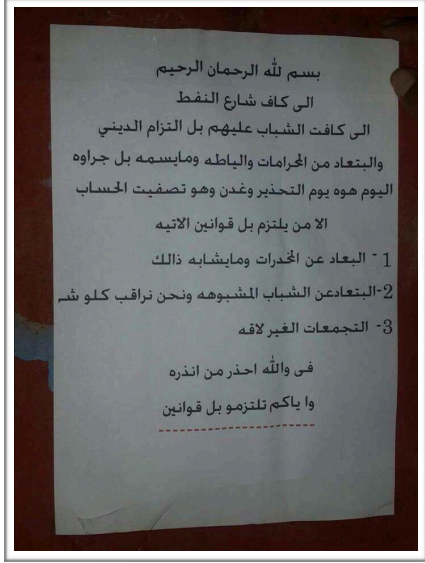 بسم لله الرحمان الرحيم
الى كاف شارع النفط
الى كافت الشباب عليهم بل التزام الديني
والبتعاد من المحرامات والياطه ومايسمه بل جراوه
اليوم هوه يوم التحذير وغدن وهو تصفيت الحساب
الا من يلتزم بل قوانين الاتيه
1- البعاد عن المخدرات ومايشابه ذالك
2-البتعادعن الشباب المشبوهه ونحن نراقب كلو شـ
3- التجمعات الغير لاقه
فى والله احذر من انذره
وا ياكم تلتزمو بل قوانين